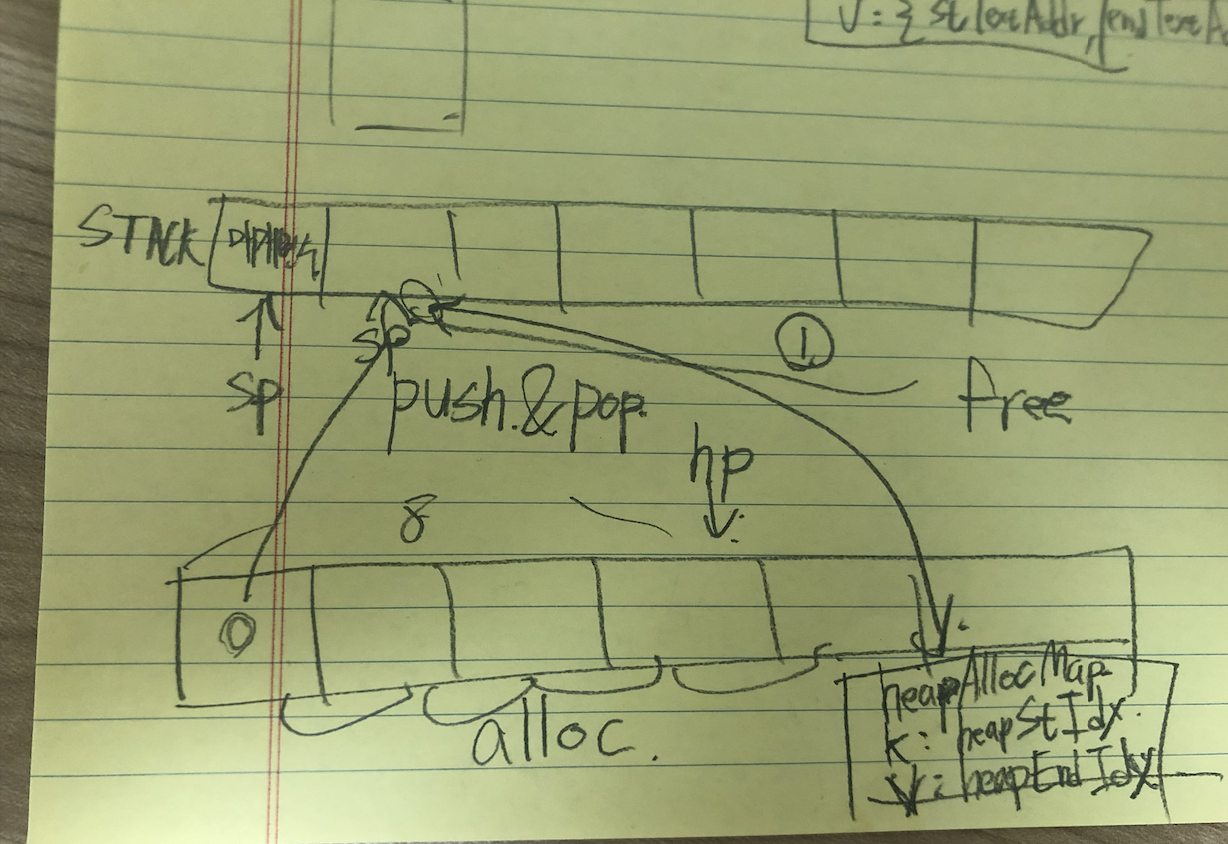 V : { stTextAddr, endTextA
STACK
sp
sp
push & pop.
①
free
hp
8
0
alloc.
heapAllocMap
k : heapStIdx
V : heapEndIdx